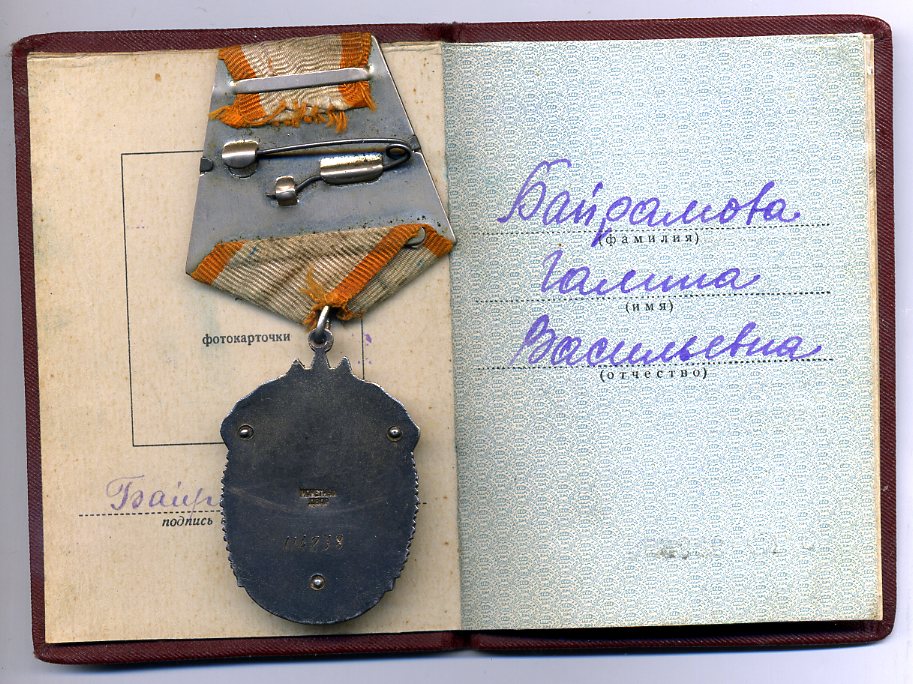 фотокарточки
Байр
подпись
Байрамова
(фамилия)
Галина
(имя)
Васильевна
(отчество)